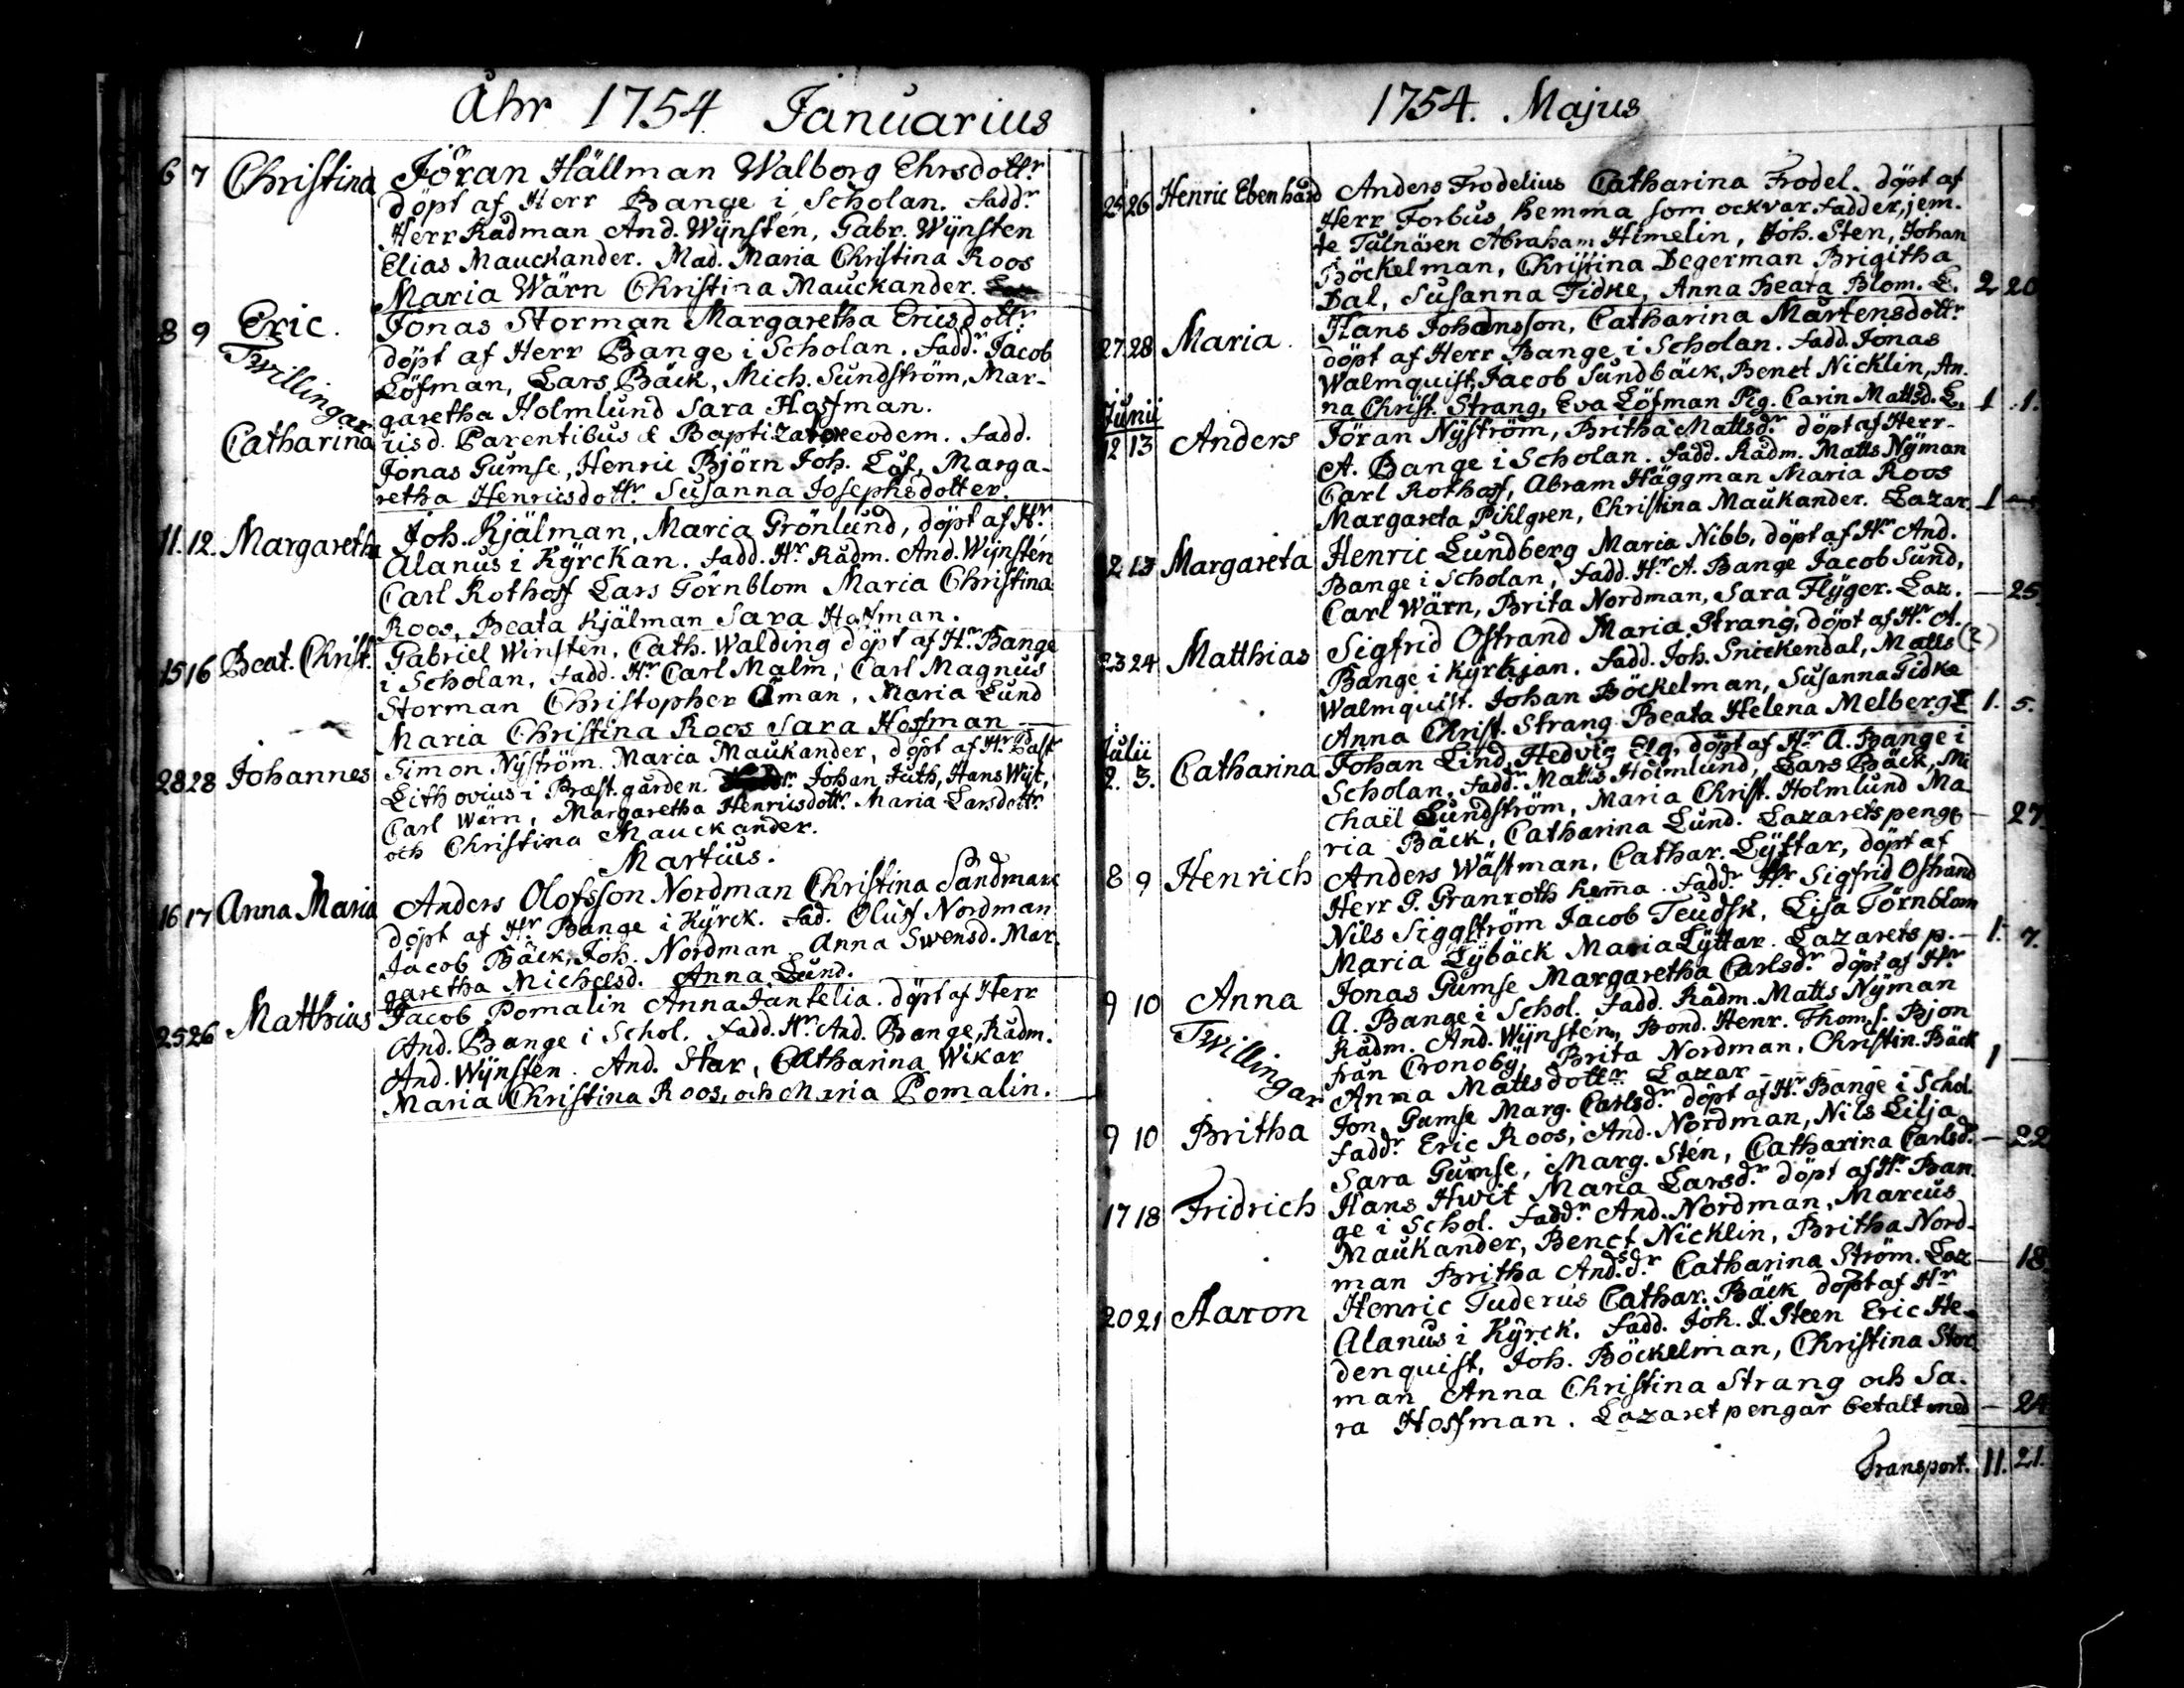 Åhr 1754. Januarius
6 7 Christina Jöran Hällman Walborg Ehrsdottr
döpt af Herr Bange i Scholan. fadd.r
Herr Rådman And. Wÿnstén, Gabr. Wÿnsten
Elias Mauckander. Mad. Maria Christina Roos
Maria Wärn Christina Mauckander.
8 9 Eric. Jonas Storman Margaretha Ericsdottr
Twillingar döpt af Herr Bange i Scholan. faddr Jacob
Löfman, Lars Bäck, Mich. Sundström, Mar-
garetha Holmlund Sara Hoffman.
Catharina iisd. Parentibus & Baptizatore eodem. fadd.
Jonas Gumse, Henric Björn Joh. Löf, Marga-
retha Henricsdottr Susanna Josephsdotter.
11. 12. Margaretha Joh. Kjälman, Maria Grönlund, döpt af Hr
Alanus i Kÿrckan. fadd. Hr Rådm. And. Wÿnstén
Carl Rothoff Lars Törnblom Maria Christina
Roos, Beata Kjälman Sara Hoffman.
15 16 Beat. Christ. Gabriel Winsten, Cath. Walding döpt af Hr Bange
i Scholan, fadd. Hr Carl Malm, Carl Magnus
Storman Christopher Åman, Maria Lund
Maria Christina Roos Sara Hoffman
28 28 Johannes Simon Nÿström. Maria Maukander, döpt af Hr Past
Lithovius i Præst.gården. Johan Juth, Hans Wÿt,
Carl Wärn, Margaretha Henricsdottr Maria Larsdottr
och Christina Mauckander.
Martius.
16 17 Anna Maria Anders Olofsson Nordman Christina Sandmare
döpt af Hr Bange i Kÿrck. fad. Oluff Nordman
Jacob Bäck, Joh. Nordman Anna Swensd. Mar-
garetha Michelsd. Anna Lund.
25 26 Matthius Jacob Pomalin Anna Jantelia. döpt af Herr
And. Bange i Schol. fadd. Hr And. Bange, Rådm.
And. Wÿnsten. And. Star, Catharina Wikar
Maria Christina Roos, och Maria Pomalin.
1754. Majus
25 26 Henric Ebenhård Anders Frodelius Catharina Frodel. döpt af
Herr Forbus hemma som ock var fadder, jem-
te Tulnären Abraham Himelin, Joh. Sten, Johan
Böckelman, Christina Degerman Brigitha
Dal, Susanna Tidke, Anna Beata Blom. L. 2 20
27 28 Maria. Hans Johansson, Catharina Mårtensdottr
döpt af Herr Bange i Scholan. fadd. Jonas
Walmquist, Jacob Sundbäck, Benet Nicklin, An-
na Christ. Strang, Eva Löfman Pig. Carin Mattsd. L. 1 .1.
Junii
12 13 Anders Jöran Nÿström, Britha Mattsdr döpt af Herr
A. Bange i Scholan. fadd. Rådm. Matts Nÿman
Carl Rothoff, Abram Häggman Maria Roos
Margareta Pihlgren, Christina Maukander. Lazar. 1
12 13 Margareta Henric Lundberg Maria Nibb, döpt af Hr And.
Bange i Scholan, fadd. Hr A. Bange Jacob Sund,
Carl Wärn, Brita Nordman, Sara Flÿger. Laz. — 25.
23 24 Matthias Sigfrid Ostrand Maria Strang, döpt af Hr A.
Bange i Kÿrkjan. fadd. Joh. Snickendal, Matts (2)
Walmquist. Johan Böckelman, Susanna Tidke
Anna Christ. Strang Beata Helena Melberg L 1. 5.
Julii
2. 3. Catharina Johan Lind, Hedvig Elg, döpt af Hr A. Bange i
Scholan, faddr Matts Holmlund, Lars Bäck, Mi
chaël Sundström, Maria Christ. Holmlund Ma
ria Bäck, Catharina Lund. Lazarets peng — 27.
8 9 Henrich Anders Wästman, Cathar. Lÿttar, döpt af
Herr G. Granroth hem̄a. faddr Hr Sigfrid Ostrand
Nils Siggström Jacob Teudsk, Lisa Törnblom
Maria Lÿbäck Maria Lÿttar. Lazarets p. — 1. 7.
9 10 Anna Jonas Gumse Margaretha Carlsdr döpt af Hr
Twillingar A. Bange i Schol. fadd. Rådm. Matts Nÿman
Rådm. And. Wÿnstén, Bond. Henr. Thom. S. Bjon
från Cronobÿ, Brita Nordman, Christin. Bäck
Anna Mattsdottr Lazar — 1 —
9 10 Britha Jon. Gumse Marg. Carlsdr döpt af Hr Bange i Schol.
faddr Eric Roos, And. Nordman, Nils Lilja
Sara Gumse, Marg. Stén, Catharina Carlsdr — 22
17 18 Fridrich Hans Hwit Maria Larsdr döpt af Hr Ban-
ge i Schol. faddr And. Nordman, Marcus
Maukander, Benct Nicklin, Britha Nord-
man Britha And.sdr Catharina Ström. Laz — 18.
20 21 Aaron Henric Tuderus Cathar. Bäck döpt af Hr
Alanus i Kÿrck. fadd. Joh. J. Steen Eric He-
denquist, Joh. Böckelman, Christina Stor-
man Anna Christina Strang och Sa-
ra Hoffman. Lazaret pengar betalt med — 24
Transport. 11. 21.